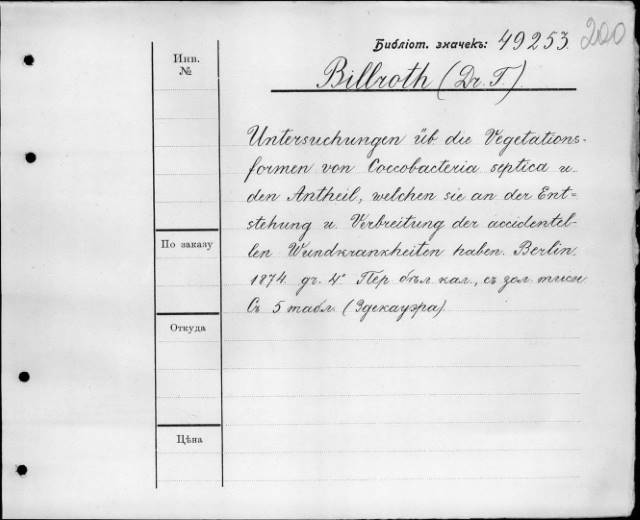 Библіот. значекъ: 49253
200
Инв. №
Billroth (Dr. T.)
Untersuchungen üb. die Vegetations-
formen von Coccobacteria septica u.
den Antheil, welchen sie an der Ent=
stehung u. Verbreitung der accidentel-
len Wundkrankheiten haben. Berlin.
1874. gr. 4° Пер. бѣл. кал., съ зол. тисн.
Съ 5 табл. (Эдекауэра)
По заказу
Откуда
Цѣна